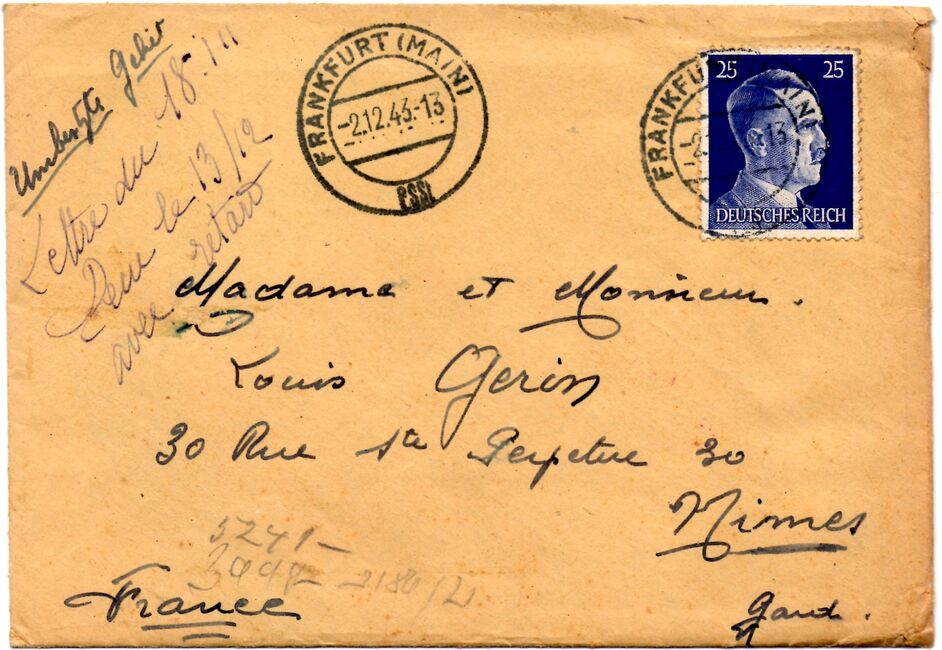 Lettre du 18.11
Recu le 13/12
avec retard
FRANKFURT (MAIN)
-2.12.43-13
25 25
DEUTSCHES REICH
FRANKFU MAIN)
-2. 13
Madame et Monsieur.
Louis Gerin
30 Rue Ste Perpetue 30
Nimes
Gard.
France
5241-